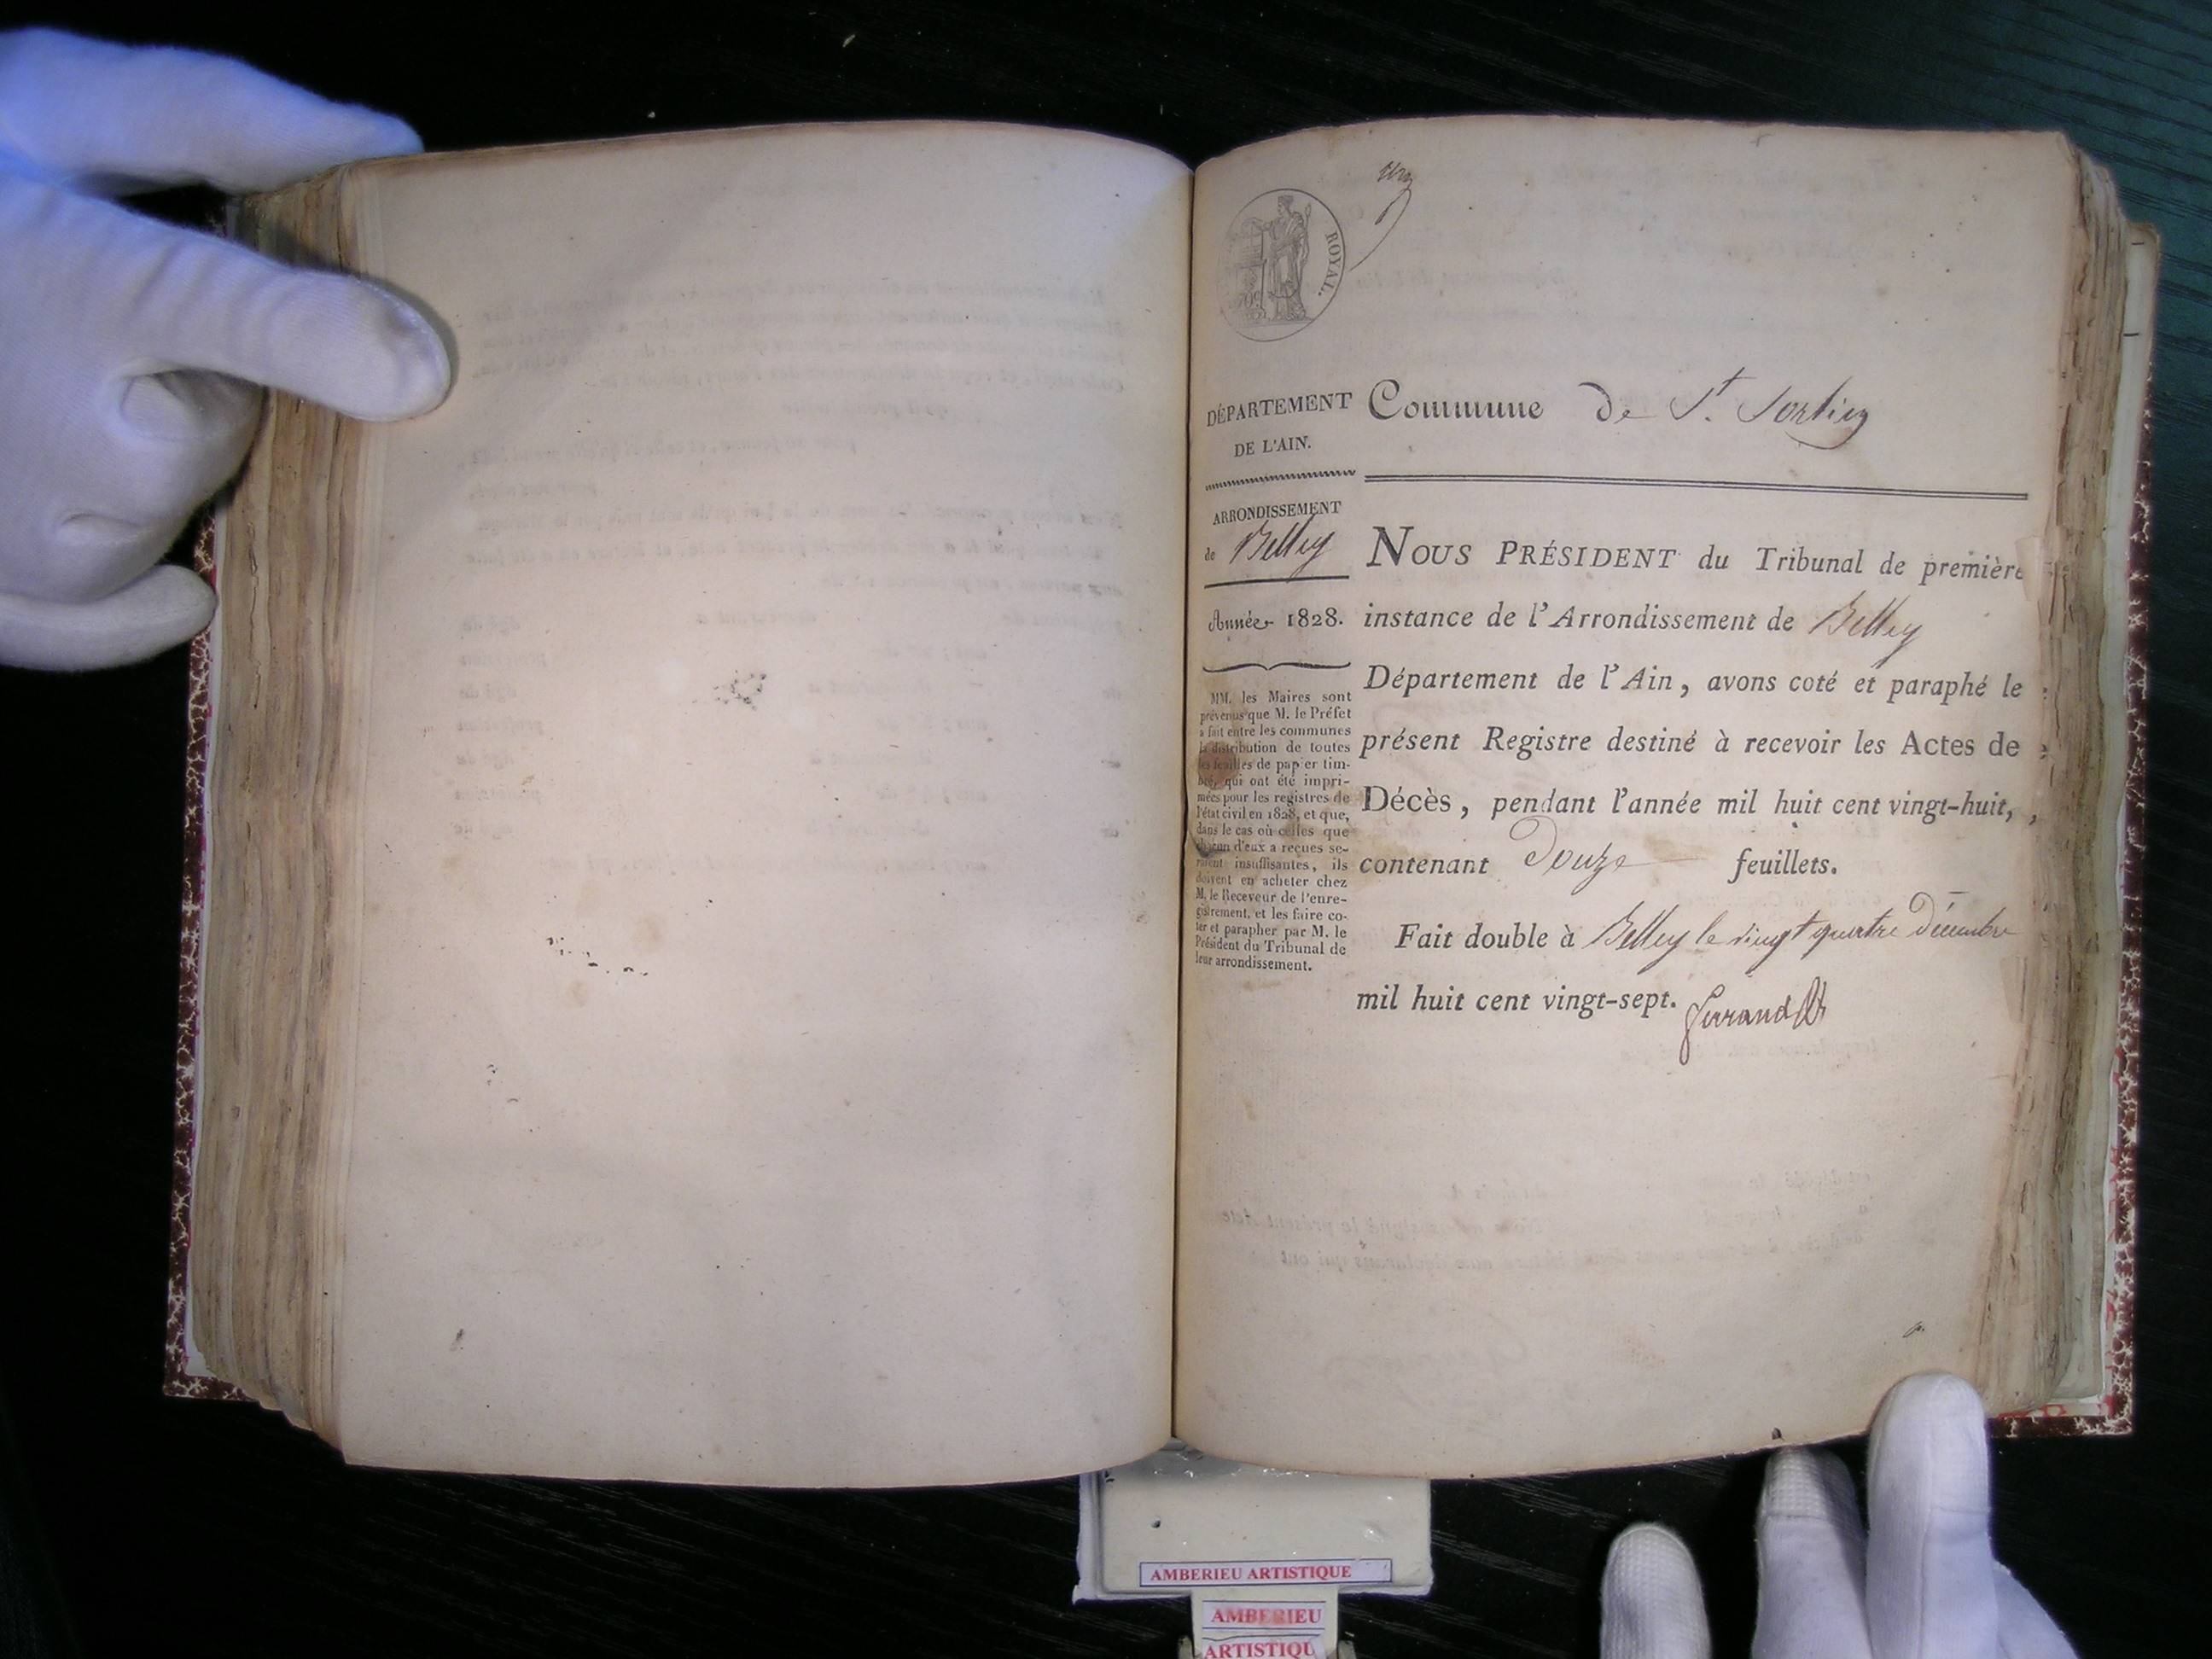 ROYAL.
DÉPARTEMENT
DE L'AIN.
ARRONDISSEMENT
de Belley
Année 1828.
MM. les Maires sont
prévenus que M. le Préfet
a fait entre les communes
la distribution de toutes
les feuilles de papier tim-
bré, qui ont été impri-
mées pour les registres de
l'état civil en 1828, et que,
dans le cas où celles que
chacun d'eux a reçues se-
raient insuffisantes, ils
doivent en acheter chez
M. le Receveur de l'enre-
gistrement, et les faire co-
ter et parapher par M. le
Président du Tribunal de
leur arrondissement.
Commune de St. Sortin
NOUS PRÉSIDENT du Tribunal de première
instance de l'Arrondissement de Belley
Département de l'Ain, avons coté et paraphé le
présent Registre destiné à recevoir les Actes de
Décès, pendant l'année mil huit cent vingt-huit,
contenant Douze feuillets.
Fait double à Belley le vingt quatre Décembre
mil huit cent vingt-sept.
AMBERIEU ARTISTIQUE
AMBERIEU
ARTISTIQU